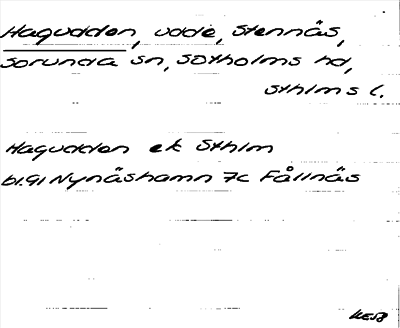 Hagudden, udde, Stennäs,
Sorunda sn, Sotholms hd,
Sthlms l.
Hagudden ek Sthlm
bl.91 Nynäshamn 7c Fållnäs